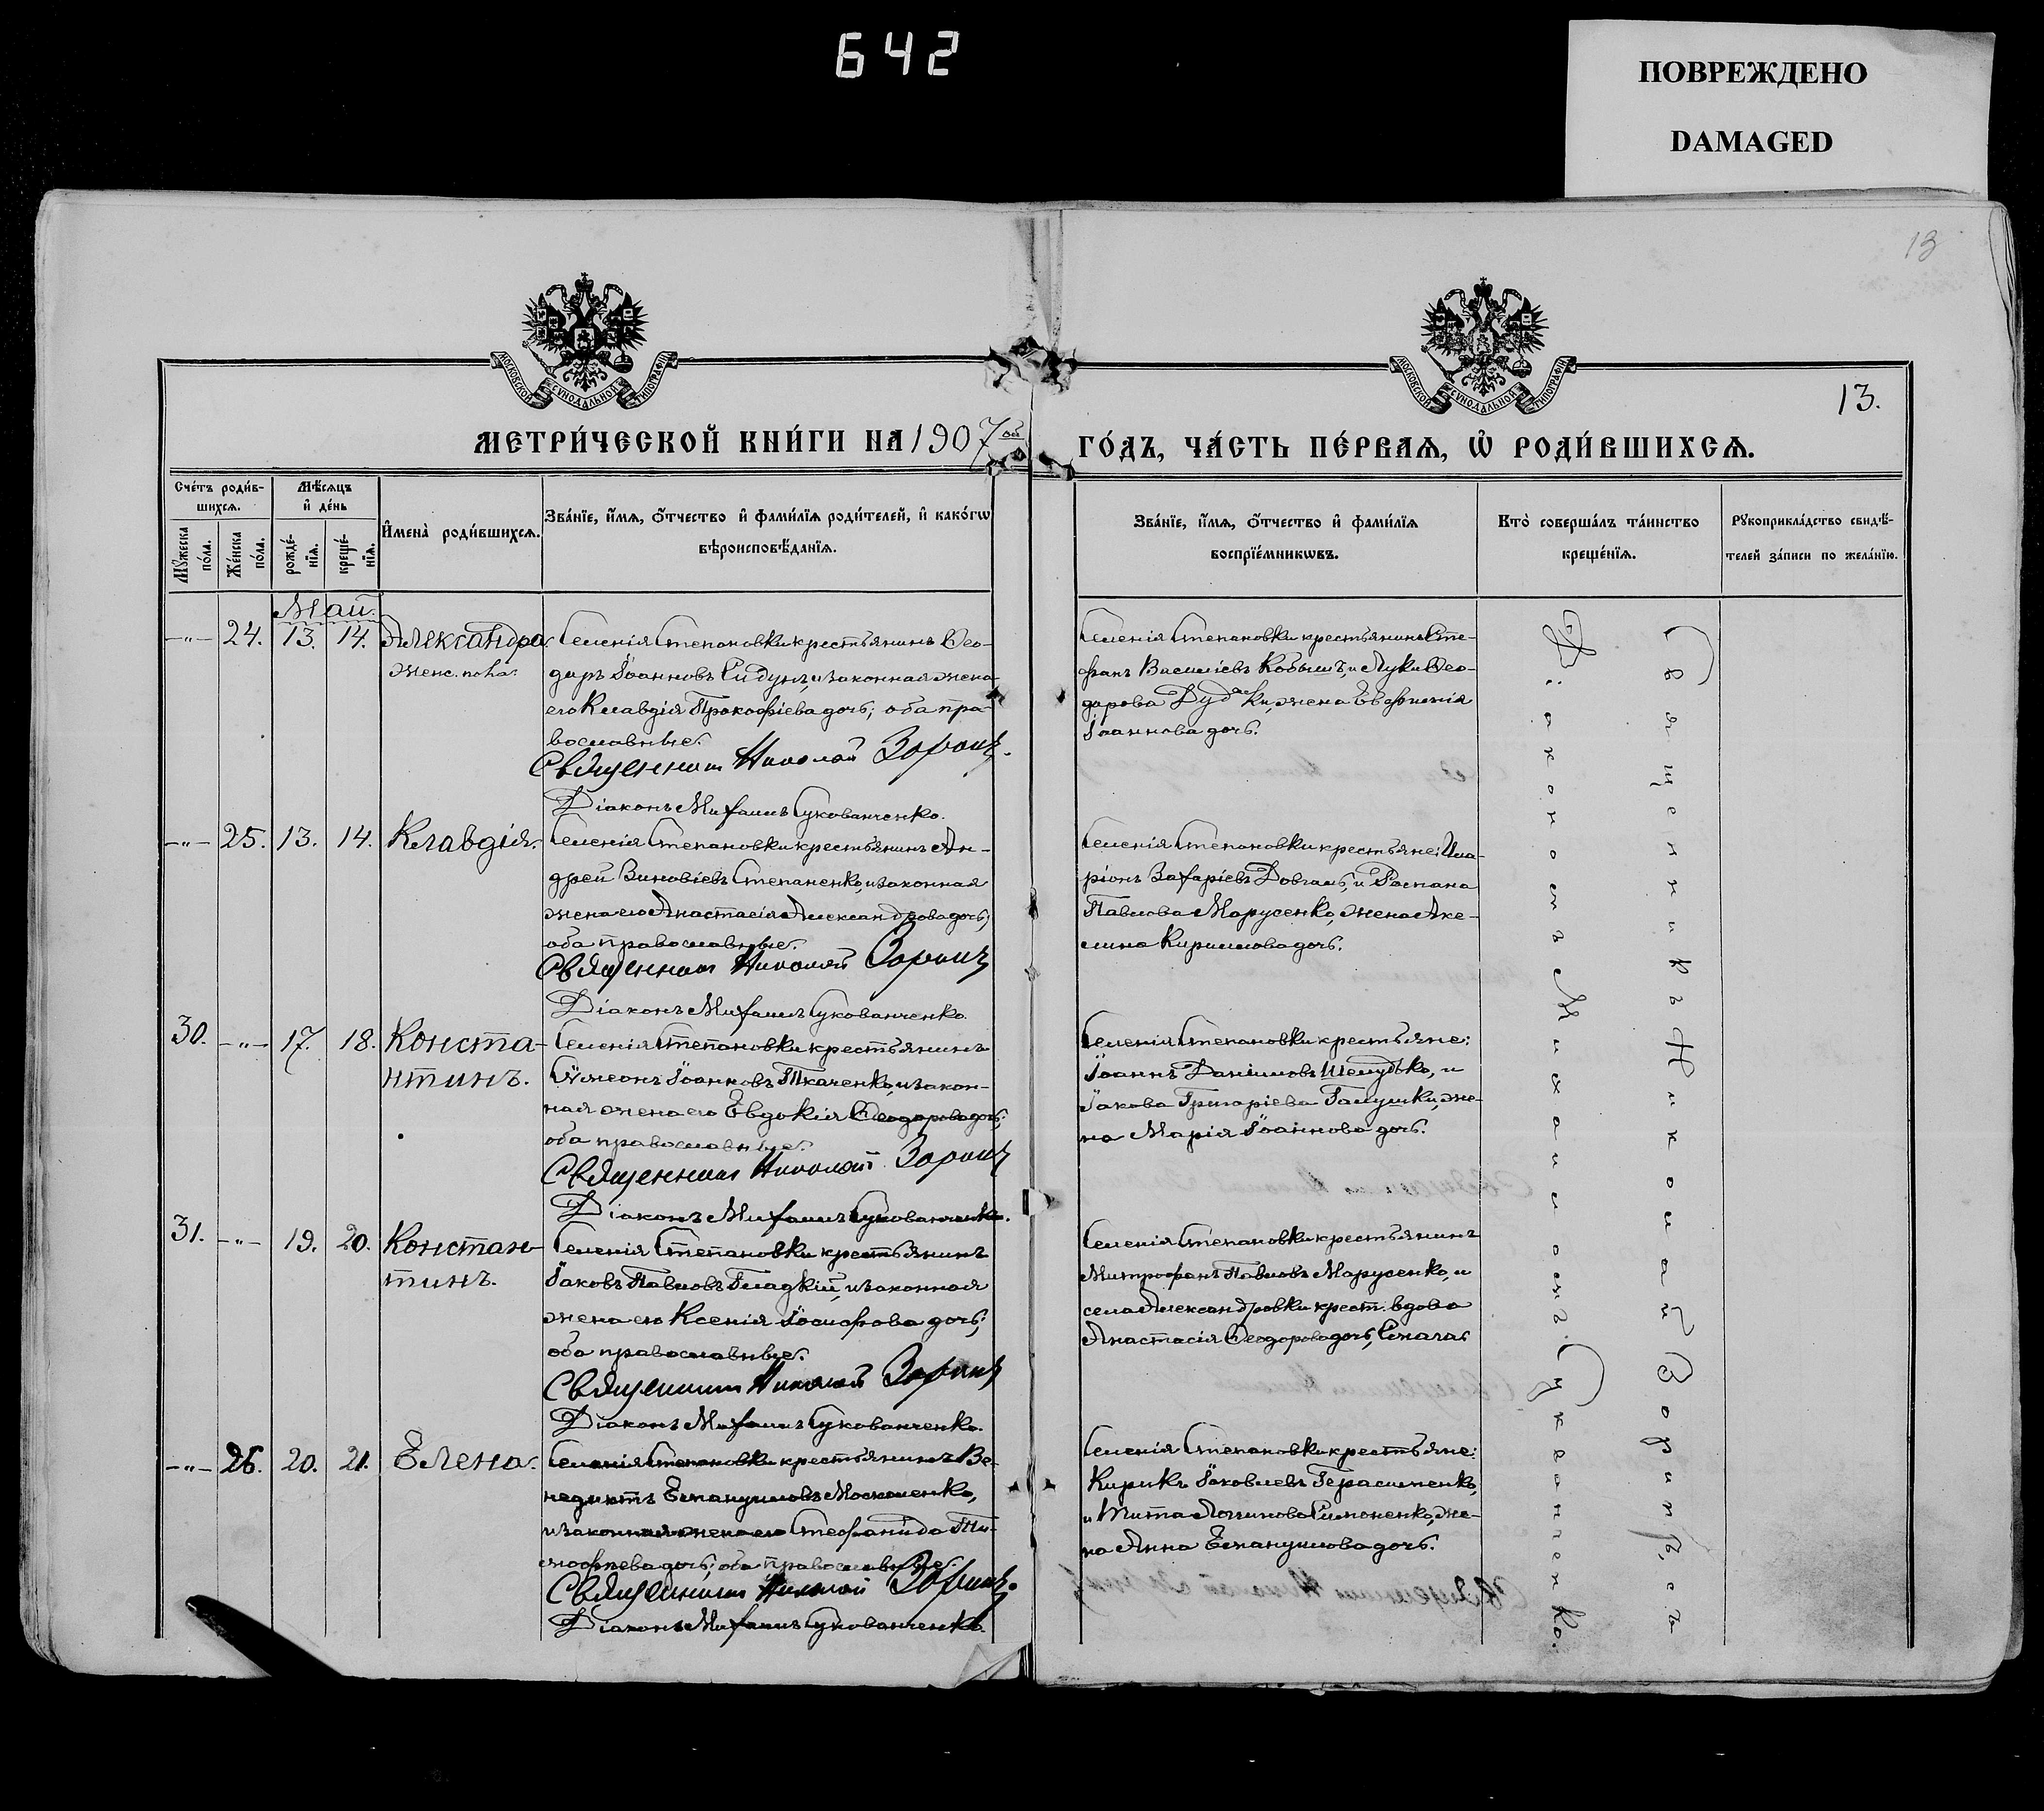 642
ПОВРЕЖДЕНО
DAMAGED
13
13.
МОСКОВСКОЙ СѴНОДАЛЬНОЙ ТИПОГРАФІИ
МОСКОВСКОЙ СѴНОДАЛЬНОЙ ТИПОГРАФІИ
МЕТРИ́ЧЕСКОЙ КНИ́ГИ НА 1907 ой ГО́ДЪ, ЧА́СТЬ ПЕ́РВАѦ, Ѡ҆ РОДИ́ВШИХСѦ.
Сче́тъ роди́в-
шихсѧ.
Мꙋ́жеска
по́ла.
Же́нска
по́ла.
Мѣ́сѧцъ
и҆ де́нь
рожде́-
нїѧ.
креще́-
нїѧ.
И҆мена̀ роди́вшихсѧ.
Зва́нїе, и҆́мѧ, ѻ҆́тчество и҆ фами́лїѧ роди́телей, и҆ како́гѡ
вѣроисповѣ́данїѧ.
Зва́нїе, и҆́мѧ, ѻ҆́тчество и҆ фами́лїѧ
воспрїе́мникѡвъ.
Кто̀ соверша́лъ та́инство
креще́нїѧ.
Рꙋкоприкла́дство свидѣ́-
телей за́писи по жела́нїю.
Май.
-"- 24. 13. 14. Александра
женс. пола.
Селенія Степановки крестьянинъ Ѳео-
доръ Іоанновъ Сидунъ, и законная жена
его Клавдія Прокофіева дочь; оба пра-
вославные.
Священник Николай Зоринъ.
Діаконъ Михаилъ Сукованченко.
Селенія Степановки крестьянинъ Сте-
фанъ Василіевъ Кобышъ, и Луки Ѳео-
дорова жена Евфимія
Іоаннова дочь.
-"- 25. 13. 14. Клавдія.
Селенія Степановки крестьянинъ Ан-
дрей Зиновіевъ Степаненко, и законная
жена его Анастасія Александрова дочь;
оба православные.
Священник Николай Зоринъ
Діаконъ Михаилъ Сукованченко.
Селенія Степановки крестьяне: Ила-
ріонъ Захаріевъ Довгаль, и Романа
Павлова Марусенко, жена Аке-
лина Кириллова дочь.
30. -"- 17. 18. Конста-
нтинъ.
Селенія Степановки крестьянинъ
Сѵмеонъ Іоанновъ Ткаченко, и закон-
ная жена его Евдокія Ѳеодорова дочь;
оба православные.
Священник Николай Зоринъ
Діаконъ Михаилъ Сукованченко.
Селенія Степановки крестьяне:
Іоаннъ Даніиловъ Шемудько, и
Іакова Григоріева Галушки, же-
на Марія Іоаннова дочь.
31. -"- 19. 20. Констан-
тинъ.
Селенія Степановки крестьянинъ
Іаковъ Павловъ Гладкій, и законная
жена его Ксенія Іосифова дочь;
оба православные.
Священник Николай Зоринъ
Діаконъ Михаилъ Сукованченко.
Селенія Степановки крестьянинъ
Митрофанъ Павловъ Марусенко, и
села Александровки крест. вдова
Анастасія Ѳеодорова дочь,
-"- 26. 20. 21. Елена.
Селенія Степановки крестьянинъ Ве-
недиктъ Еммануиловъ Москаленко,
и законная жена его Стефанида Ти-
моѳеева дочь; оба православные.
Священник Николай Зоринъ.
Діаконъ Михаилъ Сукованченко.
Селенія Степановки крестьяне:
Кирикъ Іаковлевъ Герасименко,
и Тита Логгинова Симоненко, же-
на Анна Еммануилова дочь.
Священникъ Николай Зоринъ, съ
Діакономъ Михаиломъ Сукованченко.